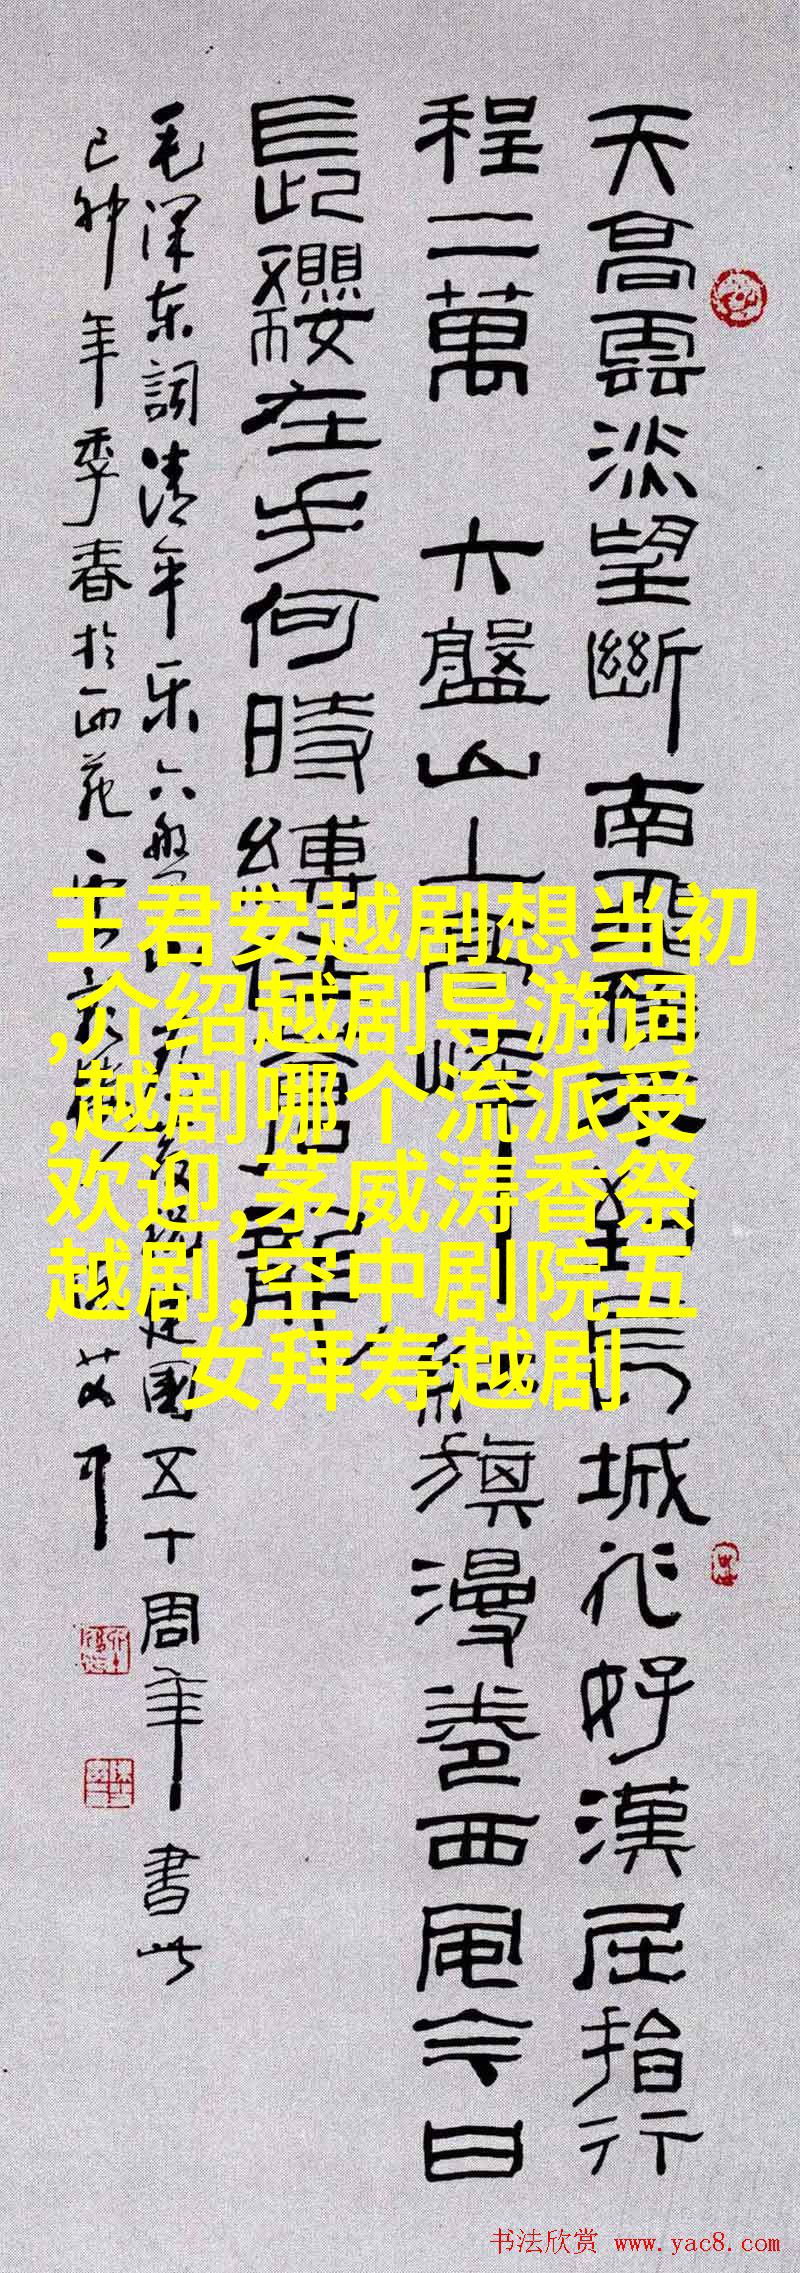 天高雲淡望斷南飛 不到長城非好漢屈指行
程二萬 六盤山上高峰 旗漫卷西風今日
長纓在手何時縛住蒼龍
毛泽东詞清平乐六盤山 建國五十周年 書此
己卯年季春於西苑
王君安越剧想当初
,介绍越剧导游词
,越剧哪个流派受
欢迎,茅威涛香祭
越剧,空中剧院五
女拜寿越剧
书法欣赏 www.yac8.com